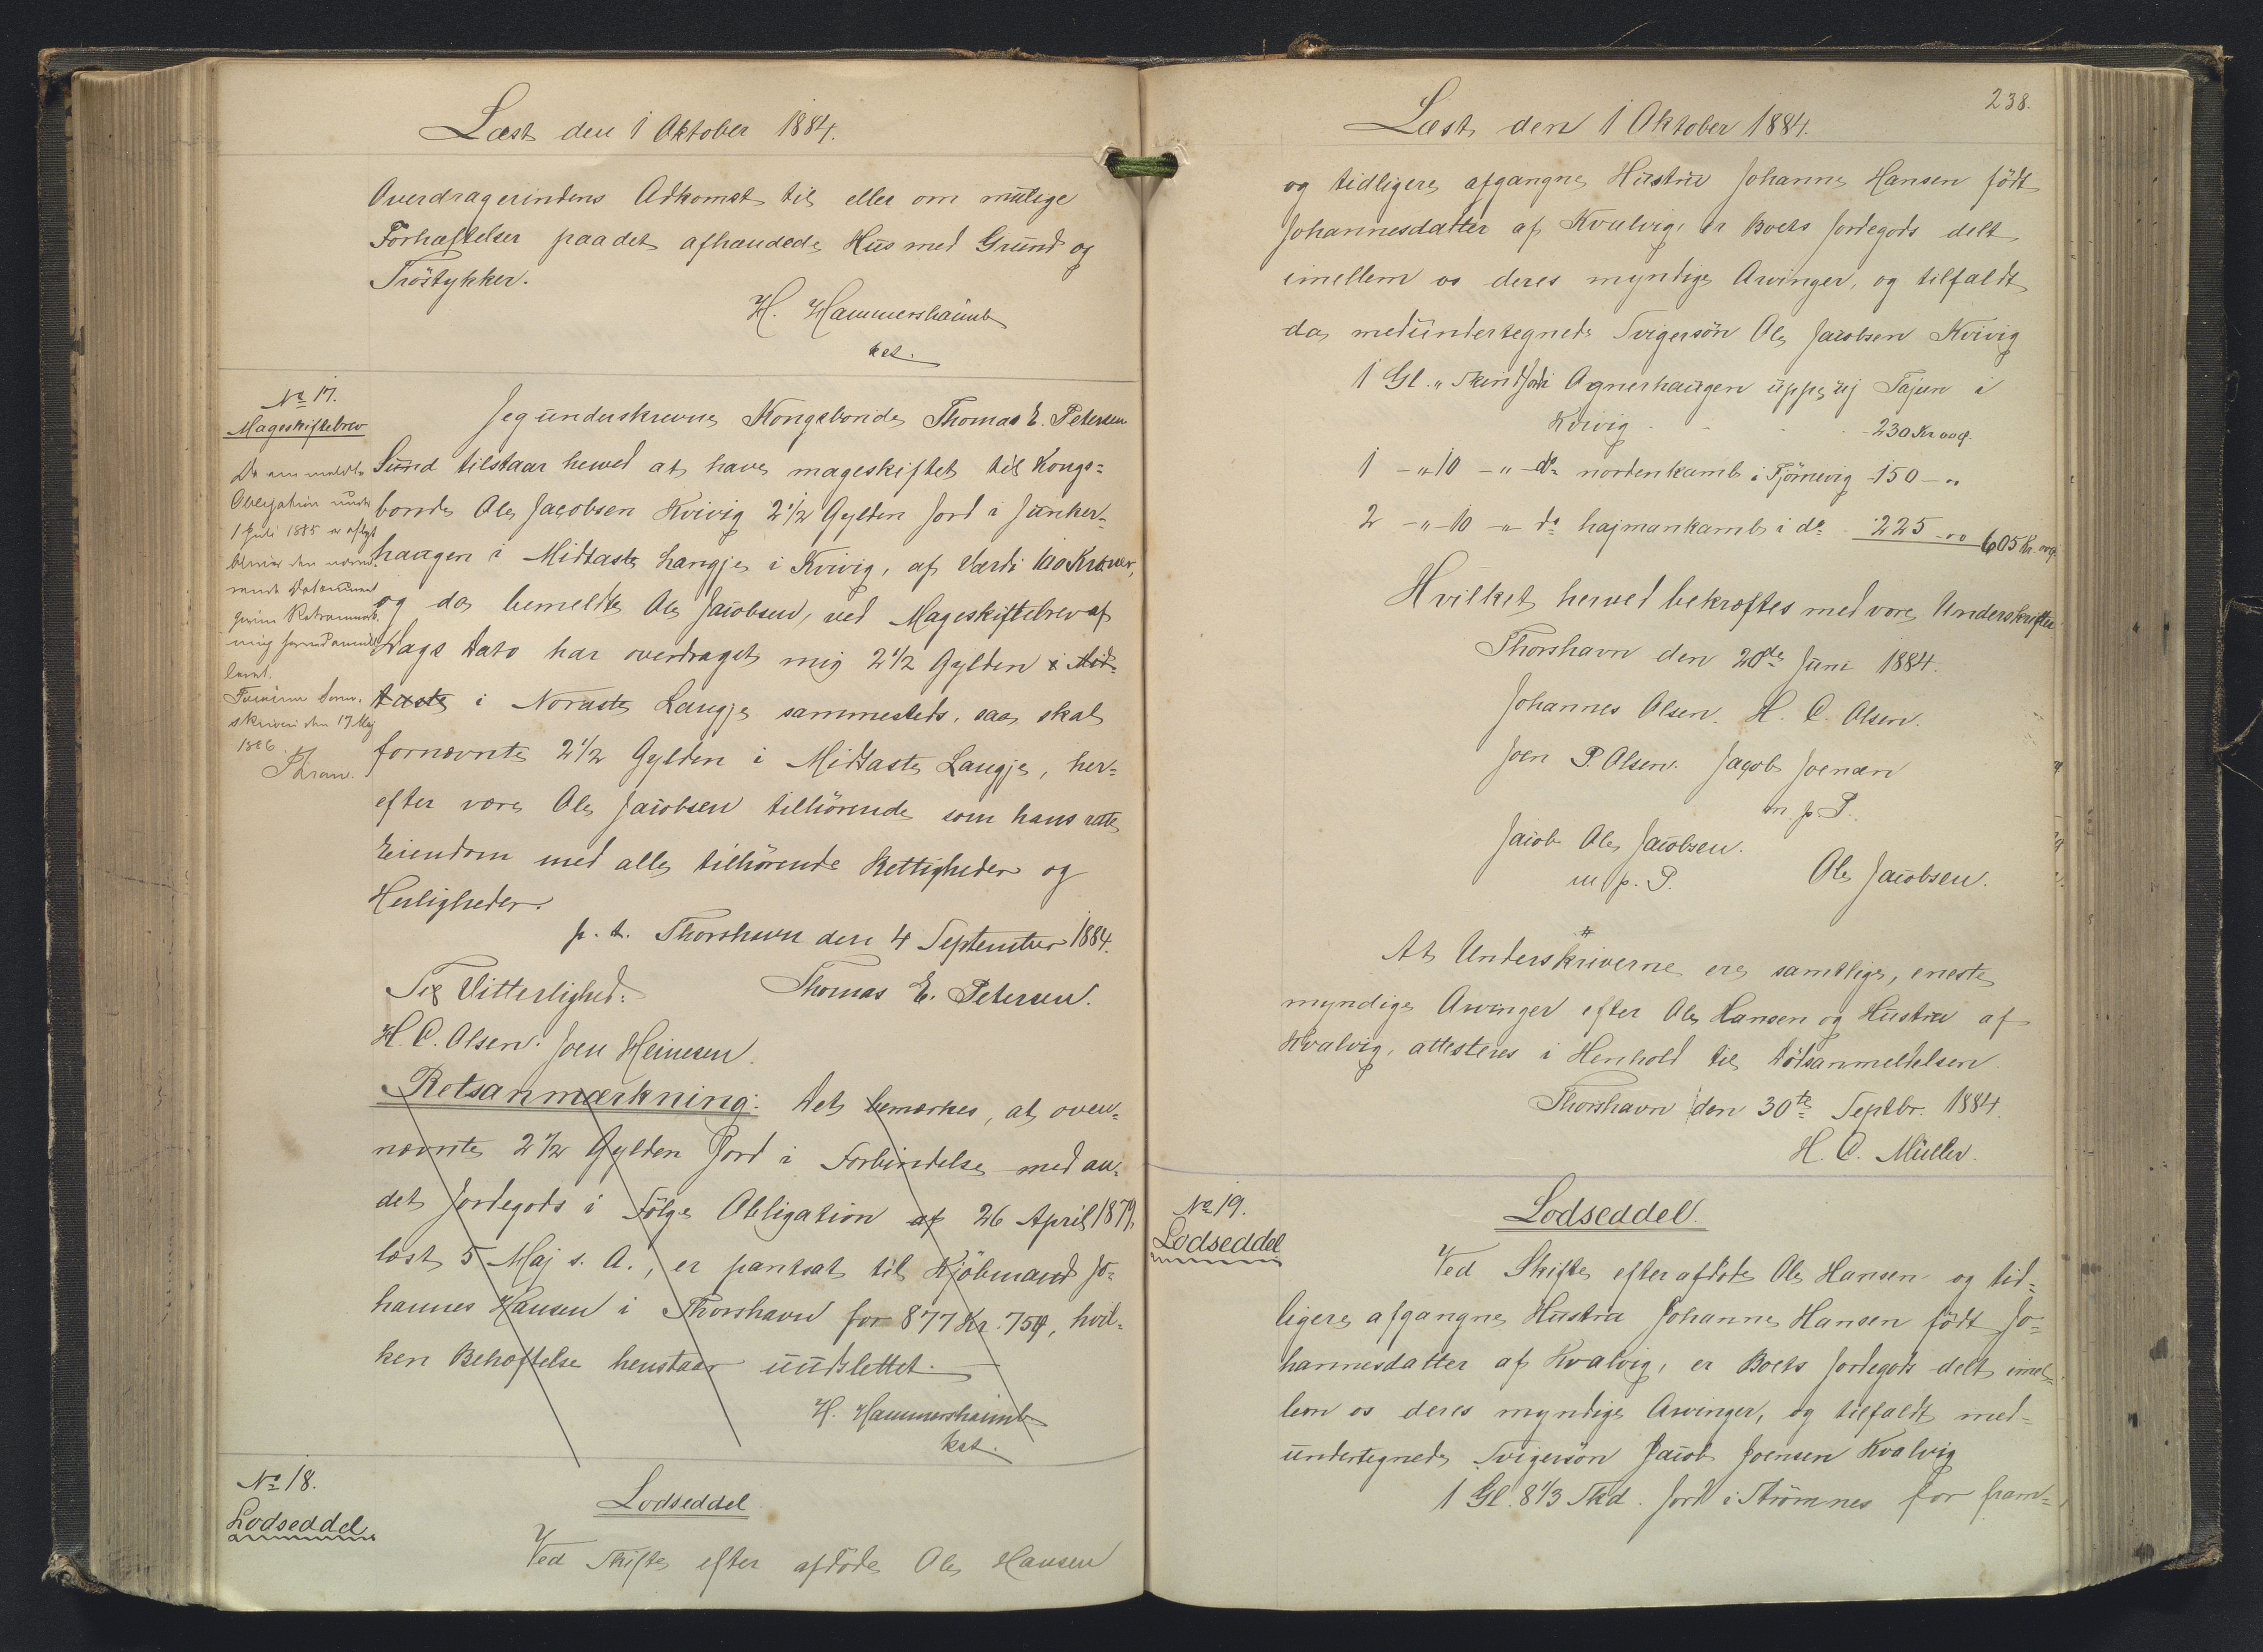 Læst den 1 Oktober 1884.
Overdragerindens Adkomst til eller om mulige
Forhæftelser paa det afhændede Hus med Grund og
Tröstykker.
H. Hammershaimb
kst.
No 17.
Mageskiftebrev
Jeg underskrevne Kongsbonde Thomas E. Petersen
Sund tilstaar herved at have mageskiftet til Kongs=
bonde Ole Jacobsen Kvivig 2 1/2 Gylden Jord i Junker-
haugen i Midtaste Langje i Kvivig, af Værdi 100 Kroner,
og da bemeldte Ole Jacobsen, ved Mageskiftebrev af
Dags Dato har overdraget mig 2 1/2 Gylden i Mid-
taste i Noraste Langje sammesteds, saa skal
fornævnte 2 1/2 Gylden i Midtaste Langje, her=
efter være Ole Jacobsen tilhörende som hans rette
Eiendom med alle tilhörende Rettigheder og
Herligheder.
p. t. Thorshavn den 4 September 1884.
Til Vitterlighed: Thomas E. Petersen.
H. C. Olsen. Joen Heinesen.
Da ommeldte
Obligation under
1 Juli 1885 er aflyst
bliver den nævnte
Retsanmærkning: Det bemærkes, at oven-
nævnte 2 1/2 Gylden Jord i Forbindelse med an-
det Jordegods i Fölge Obligation af 26 April 1879,
læst 5 Maj s. A., er pantsat til Kjöbmand Jo=
hannes Hansen i Thorshavn for 877 Kr. 75 Ø, hvil=
ken Behæftelse henstaar uudslettet.
H. Hammershaimb
kst.
No 18.
Lodseddel
Lodseddel.
Ved Skifte efter afdöde Ole Hansen
238.
Læst den 1 Oktober 1884.
og tidligere afgangne Hustru Johanne Hansen födt
Johannesdatter af Kvalvig, er Boets Jordegods delt
imellem os deres myndige Arvinger, og tilfaldt
da medundertegnede Svigersön Ole Jacobsen Kvivig
1 Gl. " Skind Jord i Agnerhaugen uppe uj Tajun i
Kvivig 230 Kr 00 Ø.
1 - " 10 - " do nordenkamb i Tjörnevig 150 - "
2 - " 10 - " do hajmankamb i do 225 - 00 605 Kr. 00 Ø.
Hvilket herved bekræftes med vore Underskrifter
Thorshavn den 20de Juni 1884.
Johannes Olsen. H. C. Olsen.
Joen P. Olsen. Jacob Joensen
m. p. P.
Jacob Ole Jacobsen.
m. p. P. Ole Jacobsen.
At Underskriverne ere samtlige, eneste
myndige Arvinger efter Ole Hansen og Hustru af
Kvalvig, attesteres i Henhold til Dödsanmeldelsen.
Thorshavn den 30te Septbr. 1884.
H. C. Müller.
No 19.
Lodseddel
Lodseddel.
Ved Skifte efter afdöde Ole Hansen og tid=
ligere afgangne Hustru Johanne Hansen födt Jo=
hannesdatter af Kvalvig, er Boets Jordegods delt imel=
lem os deres myndige Arvinger, og tilfaldt med=
undertegnede Svigersön Jacob Joensen Kvalvig
1 Gl. 8 1/3 Skd. Jord i Strömnes for fram=